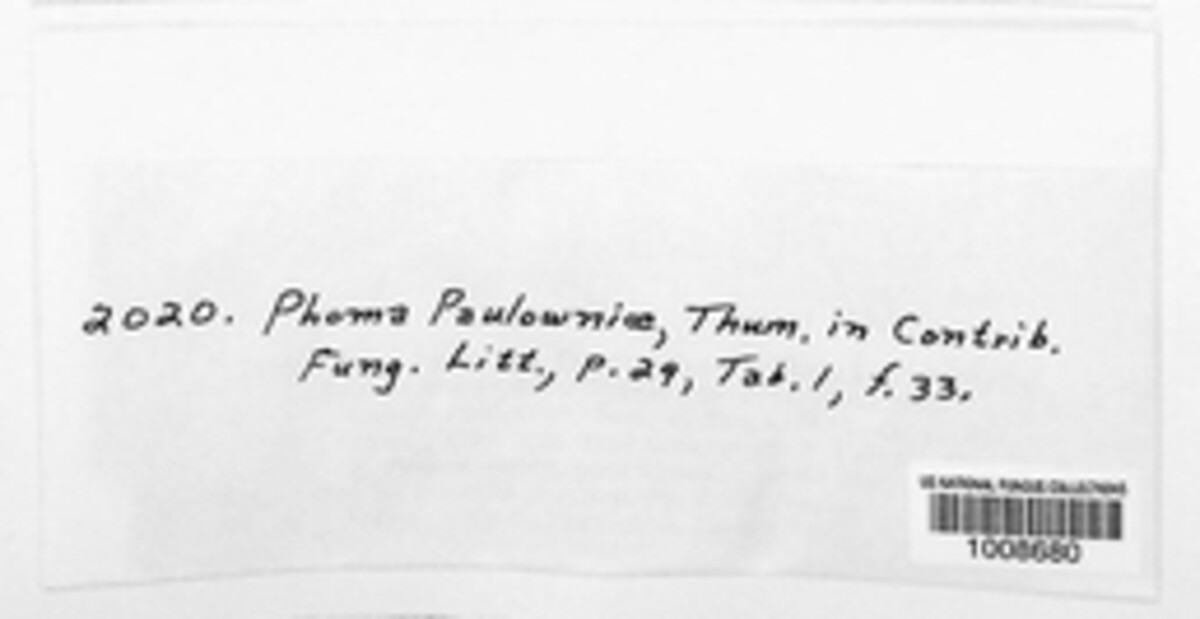 2020. Phoma Paulowniæ, Thum. in Contrib.
Fung. Litt., p. 29, Tab. 1, f. 33.
US NATIONAL FUNGUS COLLECTIONS
1008680